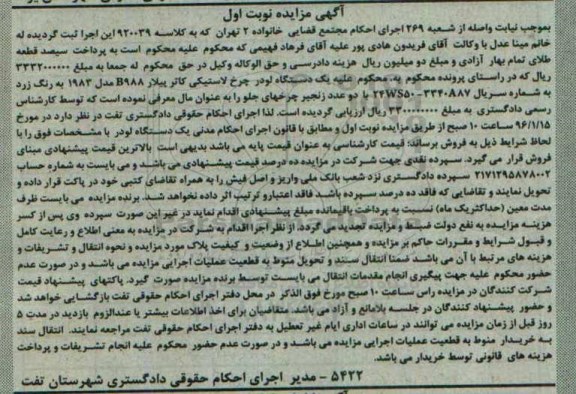 آگهی مزایده نوبت اول
بموجب نیابت واصله از شعبه ۲۶۹ اجرای احکام مجتمع قضایی خانواده ۲ تهران که به کلاسه ۹۲۰۰۳۹ این اجرا ثبت گردیده له
خانم مینا عدل با وکالت آقای فریدون هادی پور علیه آقای فرهاد فهیمی که محکوم علیه محکوم است به پرداخت سیصد قطعه
طلای تمام بهار آزادی و مبلغ دو میلیون ریال هزینه دادرسی و حق الوکاله وکیل در حق محکوم له جمعا به مبلغ ۳۳۳۲۰۰۰۰۰۰
ریال که در راستای پرونده محکوم به، محکوم علیه یک دستگاه لودر چرخ لاستیکی کاتر پیلار B۹۸۸ مدل ۱۹۸۳ به رنگ زرد
به شماره سریال ۲۴WS۵۰-۳۳۴۰۸۸۷ با دو عدد زنجیر چرخهای جلو را به عنوان مال معرفی نموده است که توسط کارشناس
رسمی دادگستری به مبلغ ریال ارزیابی گردیده است. لذا اجرای احکام حقوقی دادگستری تفت در نظر دارد در مورخ
۹۶/۱/۱۵ ساعت ۱۰ صبح از طریق مزایده نوبت اول و مطابق با قانون اجرای احکام مدنی یک دستگاه لودر با مشخصات فوق را با
لحاظ شرایط ذیل به فروش برساند؛ قیمت کارشناسی به عنوان قیمت پایه می باشد بدیهی است بالاترین قیمت پیشنهادی مبنای
فروش قرار می گیرد. سپرده نقدی جهت شرکت در مزایده ده درصد قیمت پیشنهادی می باشد و می بایست به شماره حساب
۲۱۷۱۲۹۵۸۷۸۰۰۲ سپرده دادگستری نزد شعب بانک ملی واریز و اصل فیش را به همراه تقاضای کتبی خود در پاکت قرار داده و
تحویل نمایند و تقاضایی که فاقد ده درصد سپرده باشد فاقد اعتبار و ترتیب اثر داده نخواهد شد. برنده مزایده می بایست ظرف
مدت معین (حداکثر یک ماه) نسبت به پرداخت باقیمانده مبلغ پیشنهادی اقدام نماید در غیر این صورت سپرده وی پس از کسر
هزینه مزایده به نفع دولت ضبط و مزایده تجدید می گردد. از نظر اجرا اقدام به شرکت در مزایده به معنی اطلاع و رعایت کامل
و قبول شرایط و مقررات حاکم بر مزایده و همچنین اطلاع از وضعیت و کیفیت پلاک مورد مزایده و نحوه انتقال و تشریفات و
هزینه های مرتبط با آن می باشد ضمنا انتقال سند و تحویل منوط به قطعیت عملیات اجرایی مزایده می باشد و در صورت عدم
حضور محکوم علیه جهت پیگیری انجام مقدمات انتقال می بایست توسط برنده مزایده صورت گیرد. پاکتهای پیشنهاد قیمت
شرکت کنندگان در مزایده راس ساعت ۱۰ صبح مورخ فوق الذکر در محل دفتر اجرای احکام حقوقی تفت بازگشایی خواهد شد
و حضور پیشنهاد کنندگان در جلسه بلامانع و آزاد می باشد. متقاضیان برای اخذ اطلاعات بیشتر یا عندالزوم بازدید در مدت ۵
روز قبل از زمان مزایده می توانند در ساعات اداری ایام غیر تعطیل به دفتر اجرای احکام حقوقی تفت مراجعه نمایند. انتقال سند
به خریدار منوط به قطعیت عملیات اجرایی مزایده می باشد و در صورت عدم حضور محکوم علیه انجام تشریفات و پرداخت
هزینه های قانونی توسط خریدار می باشد.
۵۴۲۲ - مدیر اجرای احکام حقوقی دادگستری شهرستان تفت